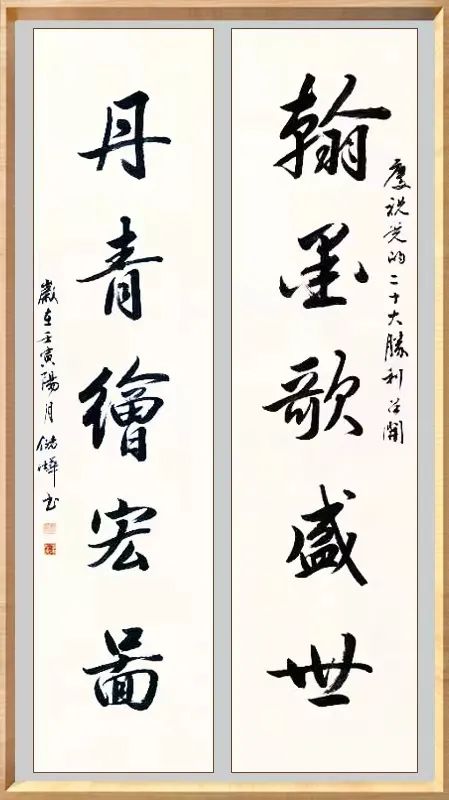 慶祝党的二十大勝利召開
翰墨歌盛世
丹青繪宏圖
歲在壬寅陽月 書